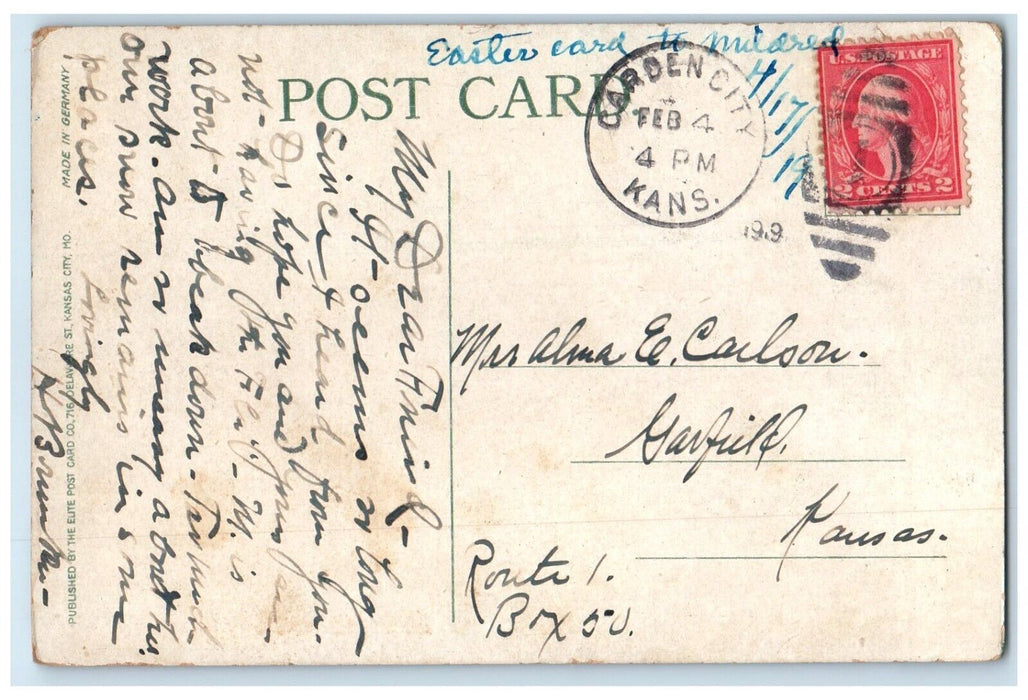 Easter card to Mildred
4/17/19
POST CARD
GARDEN CITY
FEB 4
4 PM
KANS.
1919
U.S. POSTAGE
2 CENTS 2
My Dear Friend-
It seems so long
since I heard from you.
Do hope you and yours are
not having the Flu. - M. is
about to break down - Too much
work. Am so uneasy about her.
Our snow remains in some
places.
Lovingly
Mrs Alma E. Carlson.
Garfield.
Kansas.
Route 1.
Box 50.
MADE IN GERMANY.
PUBLISHED BY THE ELITE POST CARD CO., 716 DELAWARE ST., KANSAS CITY, MO.